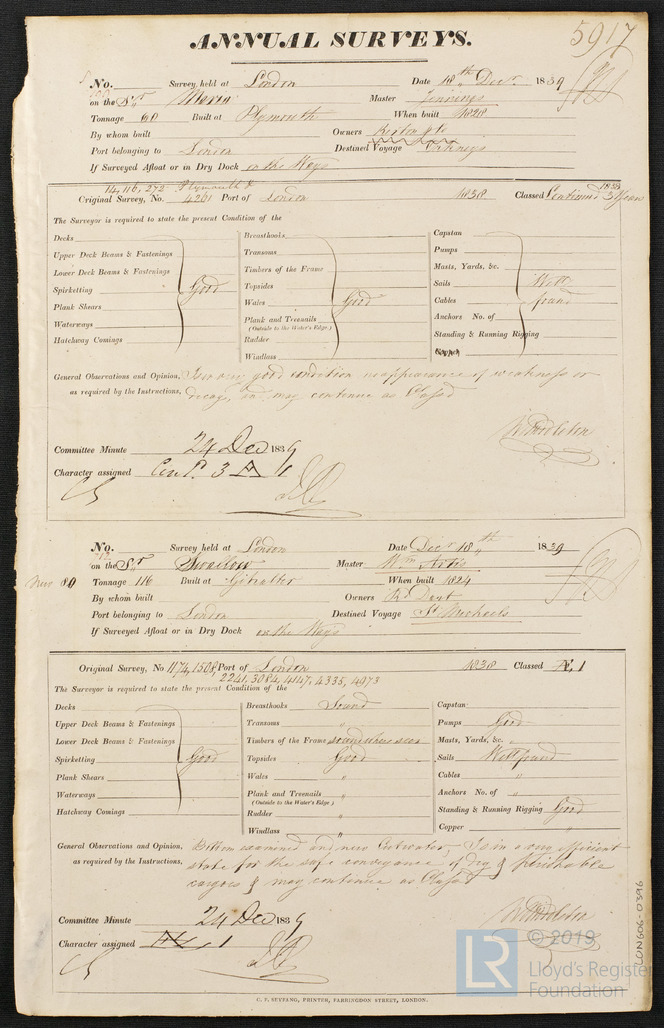 5917
ANNUAL SURVEYS.
No. Survey held at London Date 18th Decr. 1839
on the Sr Maria Master Jennings
Tonnage 60 Built at Plymouth When built 1828
By whom built Owners
Port belonging to London Destined Voyage
If Surveyed Afloat or in Dry Dock on the Ways
14, 116, 272 Plymouth &
Original Survey, No. 4261 Port of London 1838 Classed Continued 3 Years
1838
The Surveyor is required to state the present Condition of the
Decks
Upper Deck Beams & Fastenings
Lower Deck Beams & Fastenings
Spirketting Good
Plank Shears
Waterways
Hatchway Comings
Breasthooks
Transoms
Timbers of the Frame
Topsides
Wales Good
Plank and Treenails
(Outside to the Water's Edge)
Rudder
Windlass
Capstan
Pumps
Masts, Yards, &c.
Sails Well
Cables found
Anchors No. of
Standing & Running Rigging
General Observations and Opinion, Is in very good condition no appearance of weakness or
as required by the Instructions, decay, may continue as Classed
W Middleton
Committee Minute 24 Dec 1839
Character assigned Cond. 3 A 1
No. Survey held at London Date Decr 18th 1839
on the Sr Swallow Master Wm
Now 80 Tonnage 116 Built at Gibralter When built 1824
By whom built Owners R. Dent
Port belonging to London Destined Voyage St Michaels
If Surveyed Afloat or in Dry Dock on the Ways
Original Survey, No 1174, 1508, Port of London 1838 Classed Æ 1
2241, 3084, 4147, 4335, 4973
The Surveyor is required to state the present Condition of the
Decks
Upper Deck Beams & Fastenings
Lower Deck Beams & Fastenings
Spirketting Good
Plank Shears
Waterways
Hatchway Comings
Breasthooks Sound
Transoms "
Timbers of the Frame sound where seen
Topsides Good
Wales "
Plank and Treenails "
(Outside to the Water's Edge)
Rudder "
Windlass "
Capstan
Pumps Good
Masts, Yards, &c. "
Sails Well found
Cables "
Anchors No. of "
Standing & Running Rigging Good
Copper "
General Observations and Opinion, Bottom examined and new Cutwater, Is in a very efficient
as required by the Instructions, state for the safe conveyance of dry & perishable
cargoes & may continue as Classed
W Middleton
Committee Minute 24 Dec 1839
Character assigned Æ 1
LON606-0396
LR © 2019
Lloyd's Register
Foundation
C. F. SEYFANG, PRINTER, FARRINGDON STREET, LONDON.